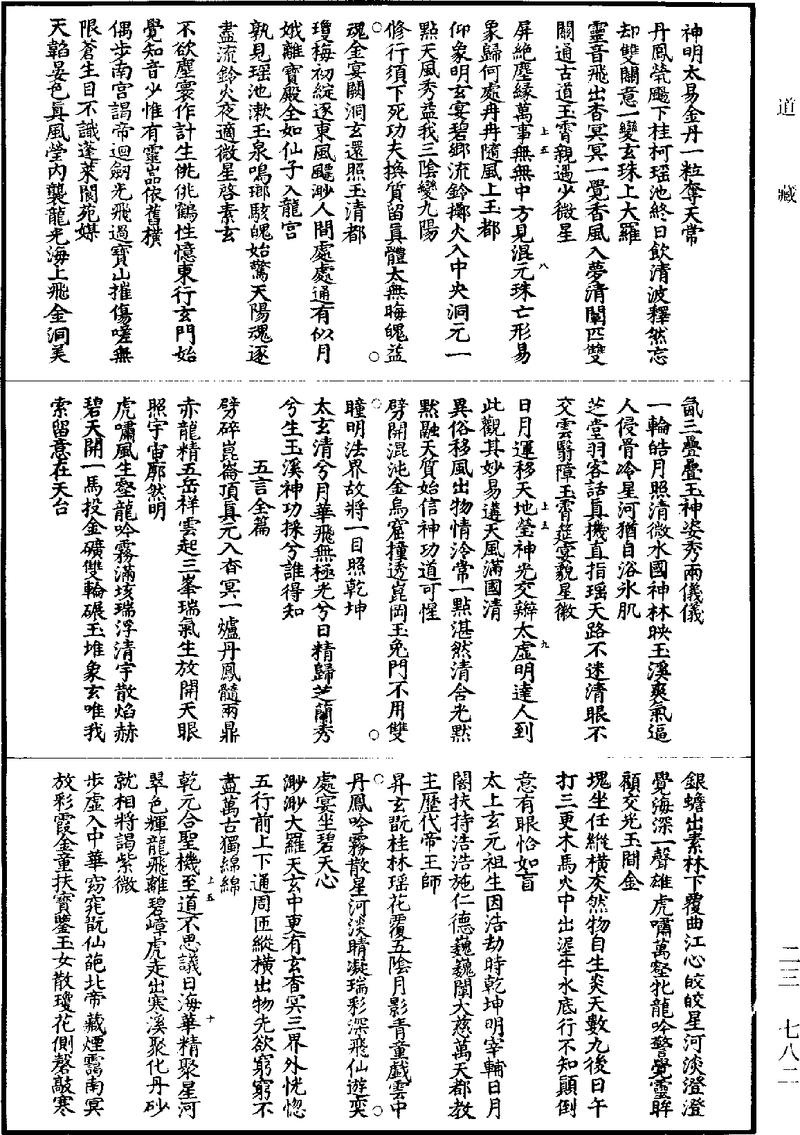 道藏
神明太易金丹一粒奪天常
丹鳳㷀飈下桂柯瑶池終日飲清波釋然忘
却雙關意一變玄珠上大羅
靈音飛出杳冥冥一覺香風入夢清闡匹雙
關通古道玉霄親過少微星
屏絶塵緣萬事無無中方見混元珠亡形易
象歸何處冉冉隨風上玉都
仰象明玄宴碧郷流鈴擲火入中央洞元一
點天風秀益我三陰變九陽
修行須下死功夫換質留眞體太無晦魄蓝
魂金宴闕洞玄還照玉清都
瓊梅初綻逐東風飃渺人間處處通有似月
娥離寶殿全如仙子入龍宫
孰見瑶池漱玉泉鳴瑯駭魄始驚天陽魂逐
盡流鈴火夜適微星啓素玄
不欲塵寰作計生佻佻鶴性憶東行玄門始
覺知音少惟有靈嵓依舊横
偶步南宫謁帝迴劒光飛過寶山摧傷嗟無
限蒼生目不識蓬萊閬苑媒
天韜晏色眞風瑩内襲龍光海上飛金洞美
氤三疊疊玉神姿秀兩儀儀
一輪皓月照清微水國神林映玉溪爽氣逼
人侵骨冷星河猶自浴氷肌
芝堂羽客話眞機直指瑶天路不迷清眼不
交雲翳障玉霄筵宴貌星徽
日月運移天地瑩神光交辯太虚明達人到
此觀其妙易遘天風滿國清
異俗移風出物情泠常一點湛然清含光默
黙融天質始信神功道可惺
劈開混沌金烏窟撞透崑岡玉兔門不用雙
瞳明法界故將一目照乾坤
太玄清兮月華飛無極光兮日精歸芝蘭秀
兮生玉溪神功採兮誰得知
五言全篇
劈碎崑崙頂眞元入杳冥一爐丹鳳髓兩鼎
赤龍精五岳祥雲起三峯瑞氣生放開天眼
照宇宙廓然明
虎嘯風生壑龍吟霧滿垓瑞浮清宇散焰赫
碧天開一馬投金礦雙輪碾玉堆象玄唯我
索留意在天台
銀蟾出素林下覆曲江心皎皎星河淡澄澄
覺海深一聲雄虎嘯萬壑牝龍吟警覺靈眸
顧交光玉間金
塊坐任縱横突然物自生炎天數九後日午
打三更木馬火中出泥牛水底行不知顛倒
意有眼恰如盲
太上玄元祖生因浩劫時乾坤明宰輔日月
闇扶持浩浩施仁德巍巍闡大慈萬天都教
主歷代帝王師
昇玄翫桂林瑶花覆五陰月影青童戲雲中
丹鳳吟霧散星河淡晴凝瑞彩深飛仙遊奕
處宴坐碧天心
渺渺大羅天玄中更有玄杳冥三界外恍惚
五行前上下通周匝縱横出物先欲窮窮不
盡萬古獨綿綿
乾元合聖機至道不思議日海華精聚星河
翠色輝龍飛離碧嶂虎走出寒溪聚化丹砂
就相將謁紫微
步虚入中華窈窕翫仙葩北帝藏煙靄南冥
放彩霞金童扶寶鑒玉女散瓊花側磬敲寒
二三 七八二